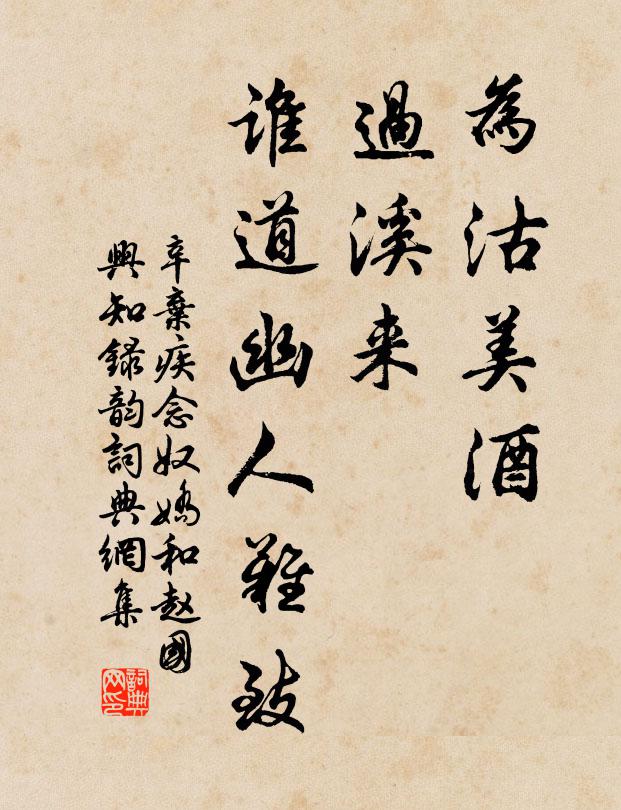 為沽美酒
過溪来
誰道幽人難致
辛棄疾念奴嬌和赵國
興知録韵詞典網集
詞典網印